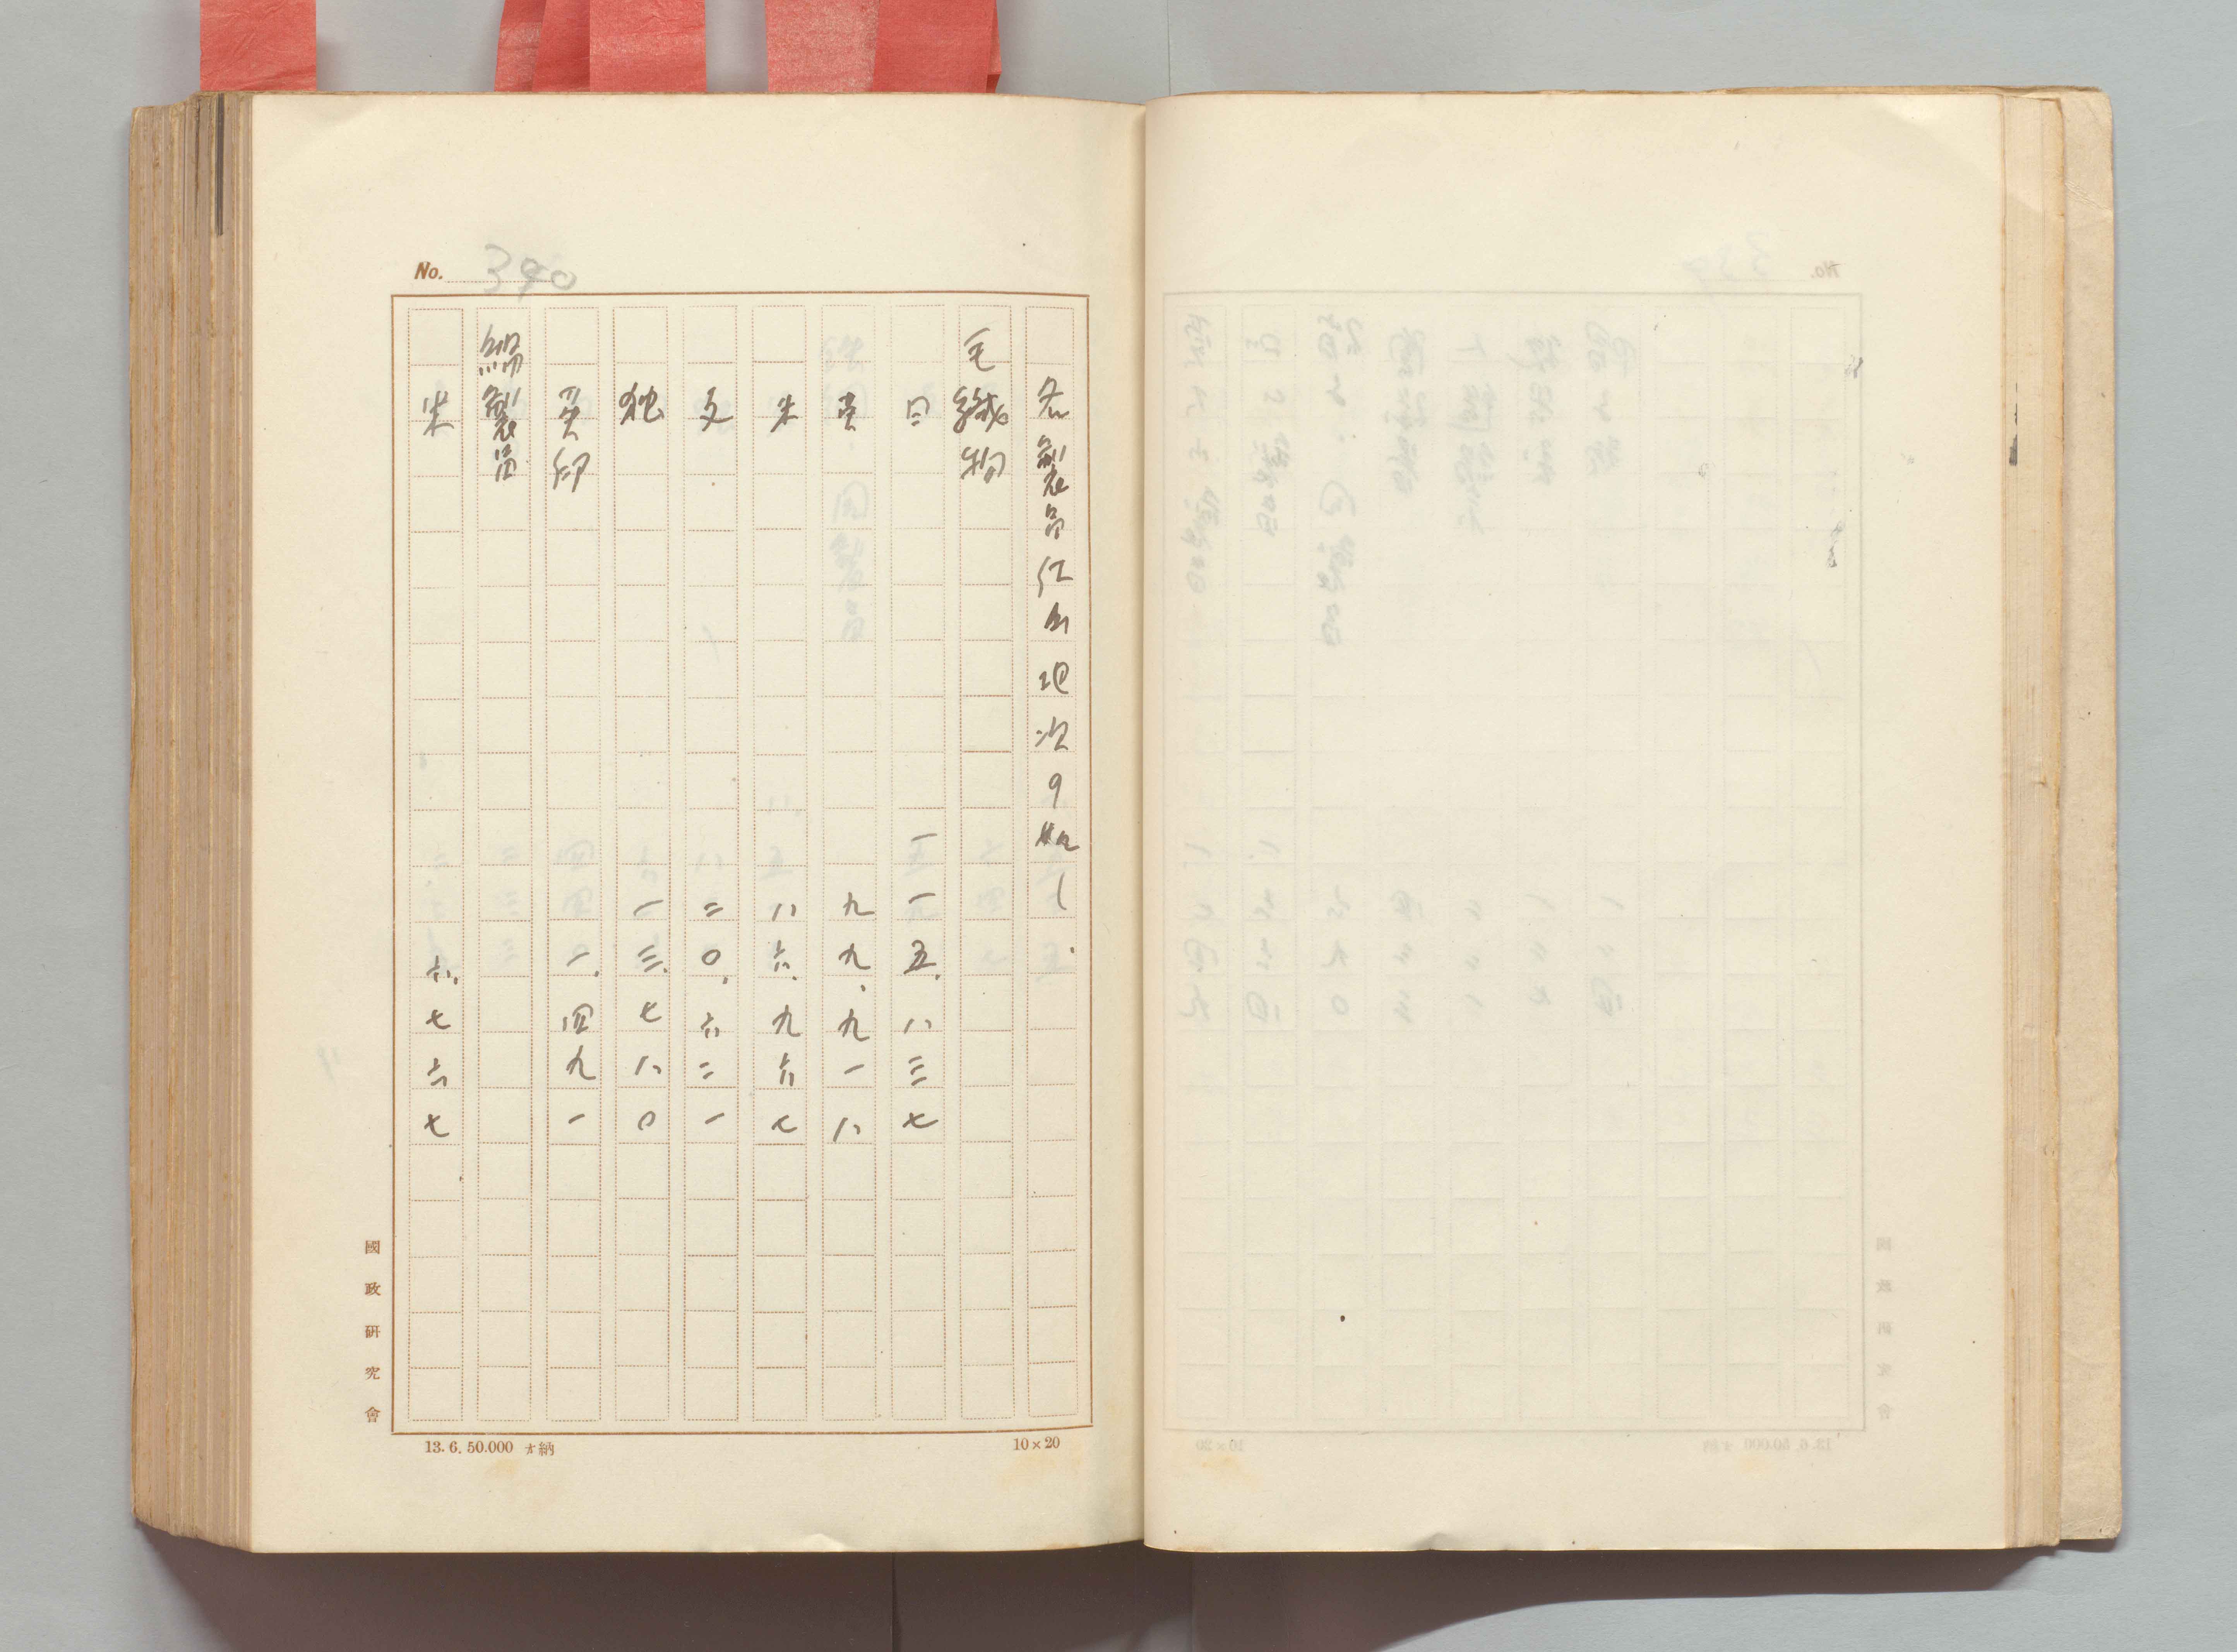 No. 390
各製品仕向地次の如し
毛織物
日 一一五、八三七
英 九九、九一八
米 八六、九六七
支 二〇、六二一
独 一三、七八〇
英印 一、四九一
綿製品
米 六、七六七
國政研究會
13.6.50.000 納
10×20